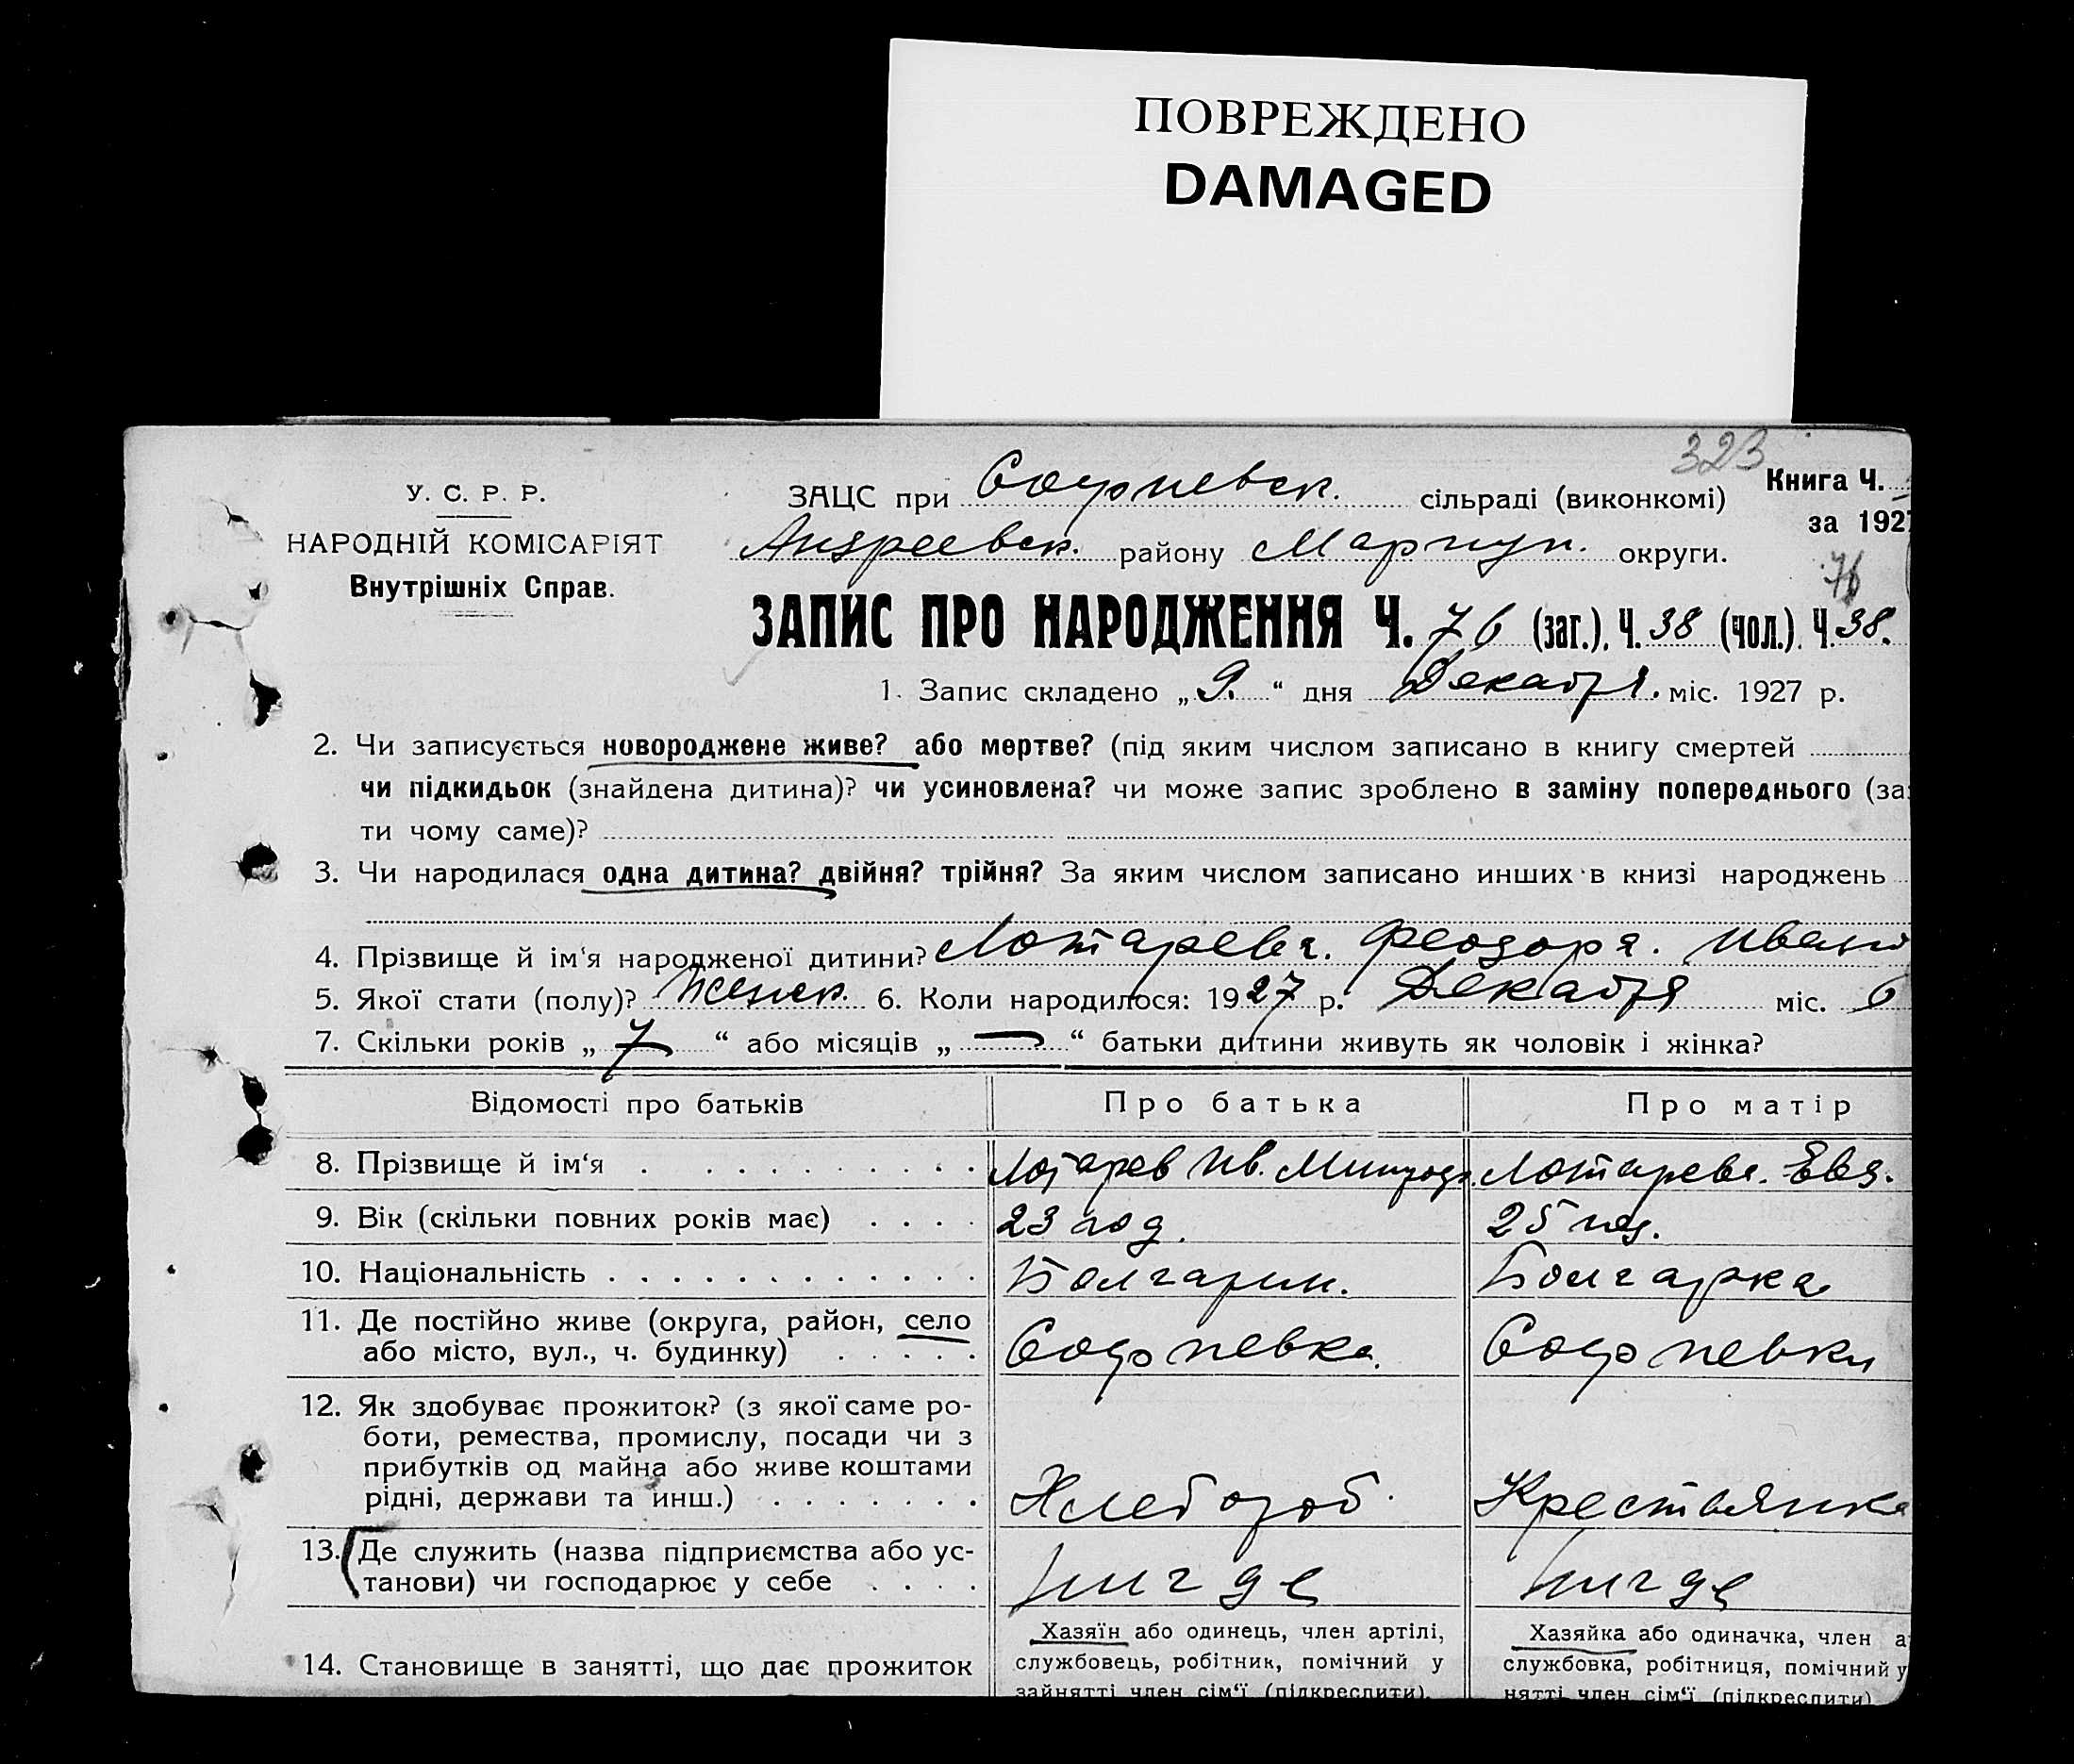 ПОВРЕЖДЕНО
DAMAGED
323
У. С. Р. Р.
НАРОДНІЙ КОМІСАРІЯТ
Внутрішніх Справ.
ЗАЦС при сільраді (виконкомі)
Книга Ч.
за 1927
Андреевск. району Мариуп. округи.
76
ЗАПИС ПРО НАРОДЖЕННЯ Ч. 76 (заг.), Ч. 38 (чол.). Ч. 38.
1. Запис складено „ 9. “ дня Декабря. міс. 1927 р.
2. Чи записується новороджене живе? або мертве? (під яким числом записано в книгу смертей
чи підкидьок (знайдена дитина)? чи усиновлена? чи може запис зроблено в заміну попереднього (за
ти чому саме)?
3. Чи народилася одна дитина? двійня? трійня? За яким числом записано инших в книзі народжень
4. Прізвище й ім‘я народженої дитини? Лотарева. Феодора. Ивано
5. Якої стати (полу)? Женск. 6. Коли народилося: 1927 р. Декабря міс. 6
7. Скільки років „ 7 “ або місяців „ — “ батьки дитини живуть як чоловік і жінка?
Відомості про батьків Про батька Про матір
8. Прізвище й ім‘я Лотарев Ив. Лотарева. Евд.
9. Вік (скільки повних років має) 23 год. 25 год.
10. Національність Болгарин. Болгарка
11. Де постійно живе (округа, район, село
або місто, вул., ч. будинку)
12. Як здобуває прожиток? (з якої саме ро-
боти, ремества, промислу, посади чи з
прибутків од майна або живе коштами
рідні, держави та инш.) Хлебороб. Крестьянка
13. Де служить (назва підприємства або ус-
танови) чи господарює у себе нигде нигде
14. Становище в занятті, що дає прожиток
Хазяїн або одинець, член артілі,
службовець, робітник, помічний у
зайнятті член сім‘ї (підкреслити).
Хазяйка або одиначка, член а
службовка, робітниця, помічний у
нятті член сім‘ї (підкреслити)